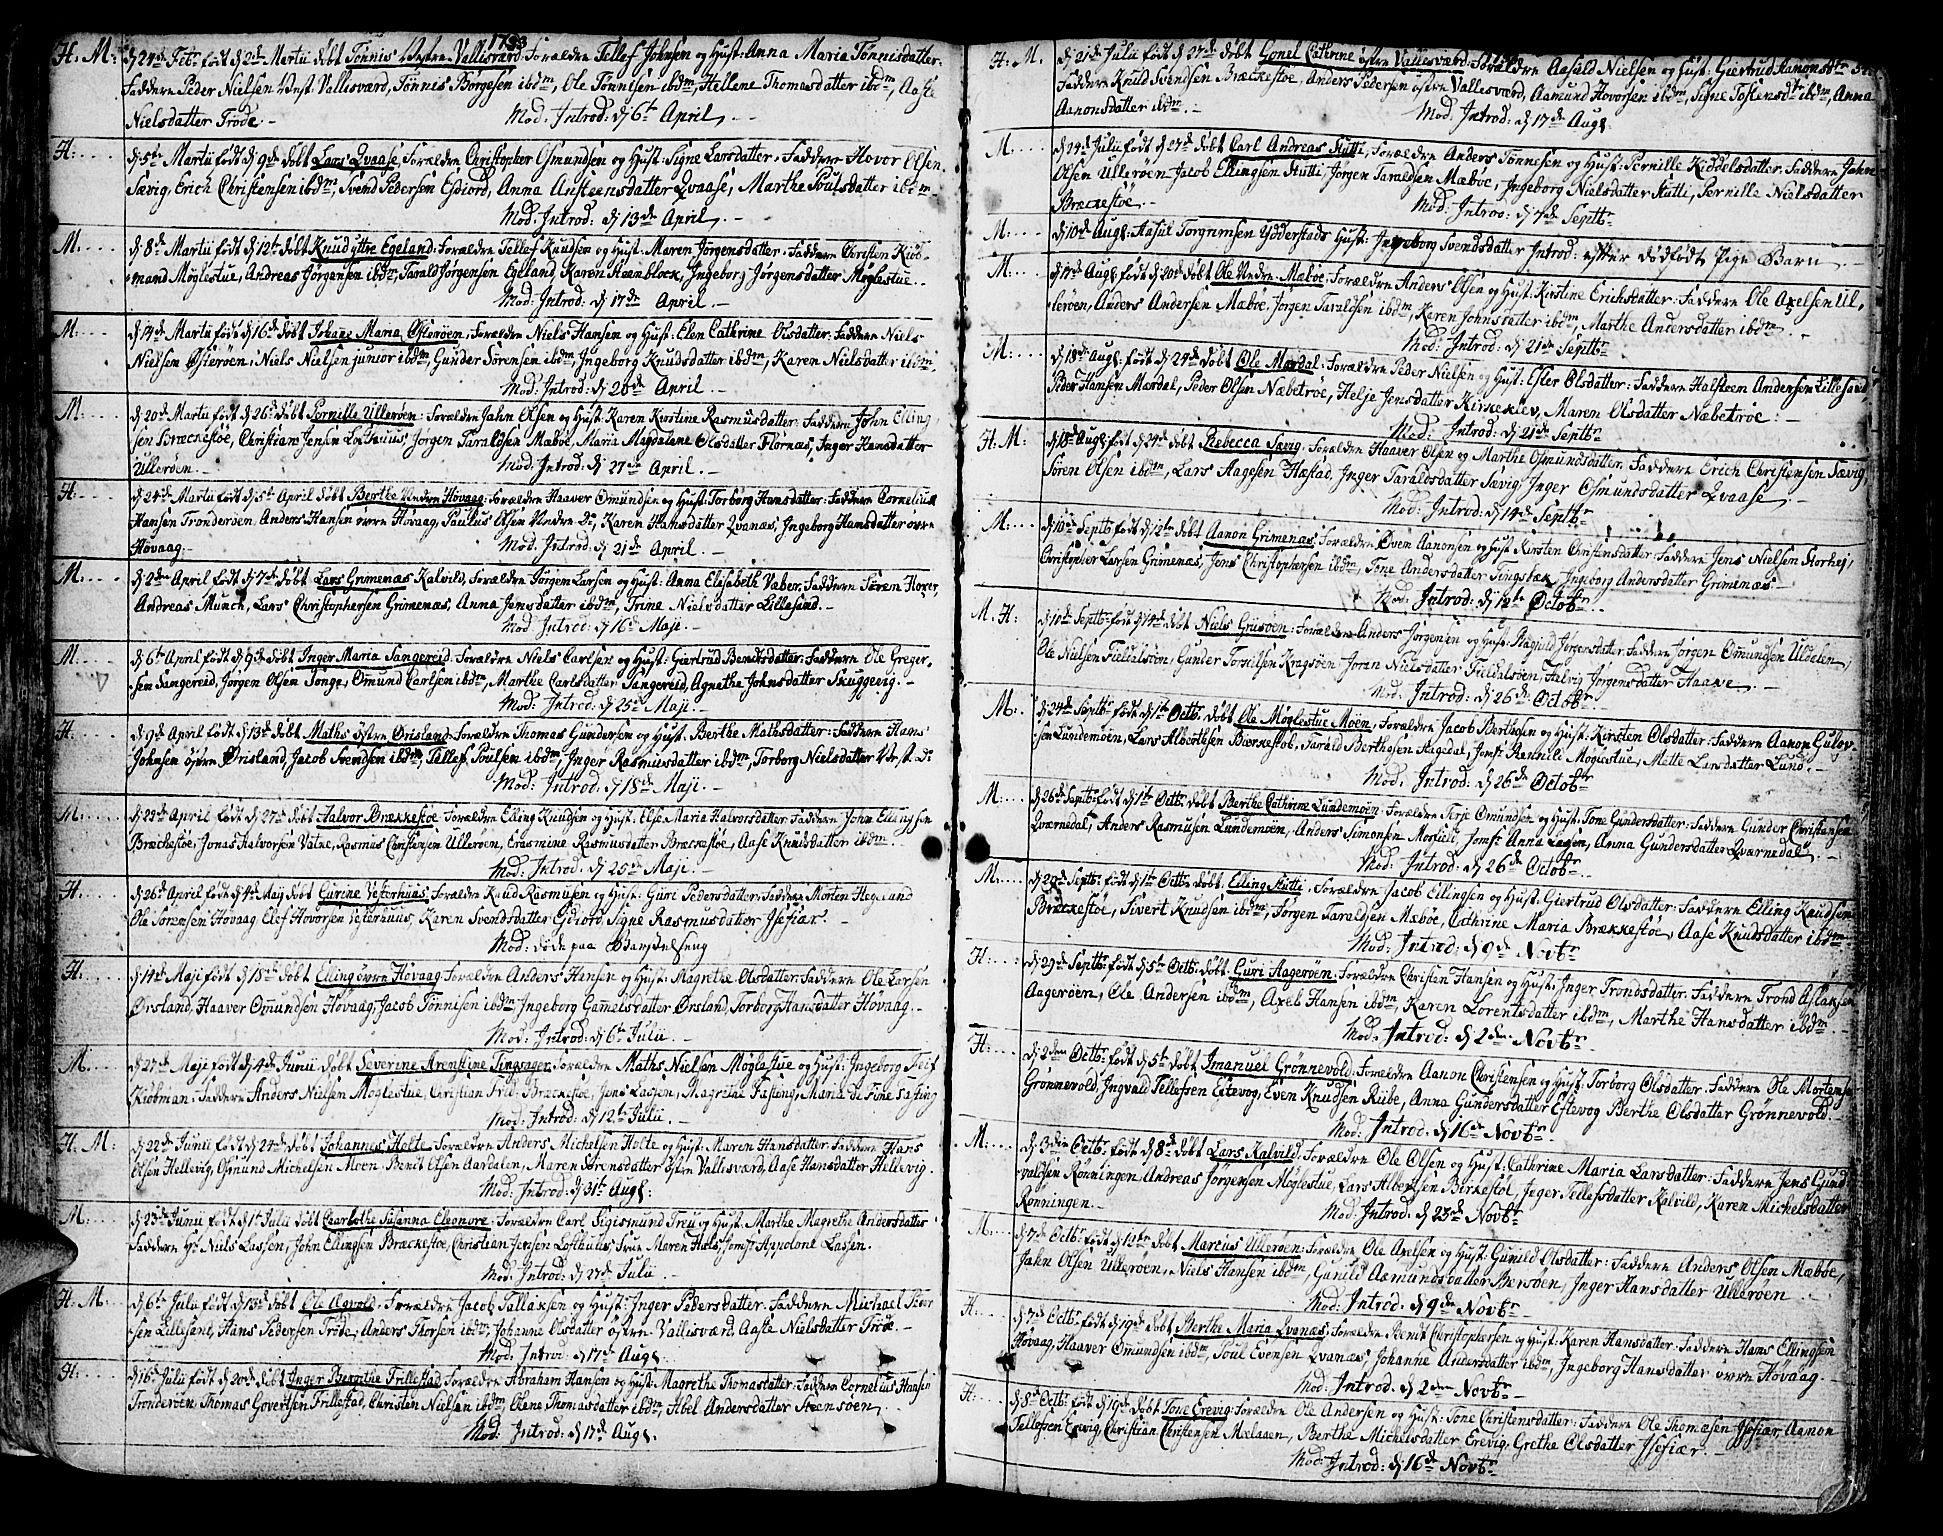 1793
H. M: d 24de Feb: født d 2de Martii døbt Tønnis Vestre Vallesværd. Forældre Tellef Johnsen og Hust: Anna Maria Tønnisdatter.
Faddere Peder Nielsen Vest. Vallesværd, Tønnis Børgesen ibdm, Ole Tønnesen ibdm, Hellene Thomasdatter ibdm, Aase
Nielsdatter Trøde. Mod. Introd: d 6te April.
H: d 5te Martii født d 9de døbt Lars Qvaase, Forældre Christopher Osmundsen og Hust: Signe Larsdatter. Faddere Hovor Olsen
Sævig, Erich Christensen ibdm, Svend Pedersen Esdiord, Anna Austeensdatter Qvaase, Marthe Poulsdatter ibdm
Mod. Introd: d 13de April.
M. d 8de Martii født d 12te døbt Knud yttre Egeland: Forældre Tellef Knudsen og Hust: Maren Jørgensdatter: Faddere Christen Kiöb-
mand Møglestue, Andreas Jørgensen ibdm, Tarald Jørgensen Egeland, Karen Hæenblock, Ingeborg Jørgensdatter Møglestue.
Mod: Introd: d 17de April.
M. d 14de Martii født d 16de døbt Johane Maria Østerøen. Forældre Niels Hansen og Hust: Elen Cathrine Olsdatter. Faddere Niels
Nielsen Østerøen, Niels Nielsen junior ibdm, Gunder Sørensen ibdm, Ingeborg Knudsdatter ibdm, Karen Nielsdatter ibdm.
Mod. Introd: d 20de April.
M. d 20de Martii født d 26de døbt Pernille Ullerøen: Forældre Jahn Olsen og Hust: Karen Kirstine Rasmusdatter: Faddere John Elling-
sen Brækkestøe, Christian Jensen Lofthuus, Jørgen Taraldsen Mæbøe, Maria Magdalene Olsdatter Flornæs, Inger Hansdatter
Ullerøen. Mod. Introd: d 27de April.
H: d 24de Martii født d 5te April døbt Berthe Vndre Høvaag: Forældre Haaver Omundsen og Hust: Torborg Hansdatter: Faddere Cornelius
Hansen Tronderøen, Anders Hansen øvre Høvaag, Paulus Olsen Vndre Do, Karen Hansdatter Qvanæs, Ingeborg Hansdatter øvre
Høvaag. Mod. Introd: d 21de April.
M. d 2den April født d 7de døbt Lars Grimenæs Kalvild, Forældre Jørgen Larsen og Hust: Anna Elisabeth Vaber. Faddere Søren Hoxer,
Andreas Munch, Lars Christophersen Grimenæs, Anna Jensdatter ibdm, Trine Nielsdatter Lillesand.
Mod. Introd: d 16de Maji.
M. d 6te April født d 9de døbt Inger Maria Tangereid. Forældre Niels Carlsen og Hust: Giertrud Bendtsdatter: Faddere Ole Greger-
sen Tangereid, Jørgen Olsen Tønge, Omund Carlsen ibdm, Marthe Carlsdatter Tangereid, Agnethe Johnsdatter Skuggevig.
Mod. Introd: d 25de Maji.
H. d 9de April født d 13de døbt Maths østre Ørisland: Forældre Thomas Gundersen og Hust: Berthe Mathsdatter: Faddere Hans
Johnsen østre Ørisland, Jacob Svendsen ibdm, Tellef Poulsen ibdm, Inger Rasmusdatter ibdm, Torborg Nielsdatter Vest. Do
Mod. Introd: d 18de Maji.
M. d 23de April født d 27de døbt Halvor Brækkestøe Forældre Elling Knudsen og Hust: Else Maria Halvorsdatter: Faddere John Ellingsen
Brækestøe, Jonas Halvorsen Vatne, Rasmus Christensen Ullerøen, Erasmine Rasmusdatter Brækestøe, Aase Knudsdatter ibdm.
Mod. Introd: d 25de Maji.
H. d 26de April født d 4de Maji døbt Gurine Vesterhuus, Forældre Knud Rasmusen og Hust: Guri Pedersdatter: Faddere Morten Hegeland
Ole Sørensen Høvaag, Elef Hovorsen Vesterhuus, Karen Svendsdatter Gidiord, Signe Rasmusdatter Isefiær.
Mod: døde paa Barselseng
H. d 14de Maji født d 18de døbt Elling øvre Høvaag Forældre Anders Hansen og Hust: Magrethe Olsdatter: Faddere Ole Larsen
Ørsland, Haaver Omundsen Høvaag, Jacob Tønnisen ibdm, Ingeborg Gamelsdatter Ørsland, Torborg Hansdatter Høvaag.
Mod. Introd: d 6te Julii.
M. d 27de Maji født d 4de Junii døbt Severine Arentine Tingsager. Forældre Maths Nielsen Møglestue og Hust: Ingeborg Teif
Kiöbman: Faddere Anders Nielsen Møglestue, Christian Friis Brækestøe, Jens Lassen, Magretha Fasting, Maria de Fine Fasting
Mod: Introd: d 12te Julii.
H. M: d 22de Junii født d 24de døbt Johannes Holte. Forældre Anders Michelsen Holte og Hust: Maren Hansdatter. Faddere Hans
Olsen Hellevig, Osmund Michelsen Moen, Bendt Elsen Aardalen, Maren Sørensdatter østre Vallesværd, Aase Hansdatter Hellevig.
Mod: Introd: d 31te Aug:
M. d 23de Junii født d 1te Julii døbt Charlothe Susanna Eleonore: Forældre Carl Sigismund Treu og Hust: Marthe Magrethe Andersdatter
Faddere Hr Niels Lassen, John Ellingsen Brækestøe, Christian Jensen Lofthuus, Frue Maren Hals, Jomfr Appolone Lassen.
Mod: Introd: d 27de Julii.
H. M. d 6te Julii født d 13de døbt Ole Agvold: Forældre Jacob Tallaksen og Hust: Inger Pedersdatter: Faddere Michael Peder-
sen Lillesand, Hans Pedersen Trøde, Anders Thorsen ibdm, Johanne Olsdatter østre Vallisværd, Aaste Nielsdatter Trøe.
Mod: Introd: d 17de Aug:
H: d 16de Julii født d 20de døbt Inger Bergithe Frillestad Forældre Abraham Hansen og Hust: Magrethe Thomasdatter: Faddere Cornelius Hansen
Tronderøen, Thomas Govertsen Frillestad, Christen Nielsen ibdm, Olene Thomasdatter ibdm, Abel Andersdatter Steensøen.
Mod: Introd: d 17de Aug.
H. M. d 21de Julii født d 27de døbt Gonel Cathrine østre Vallesværd: Forældre Aasuld Nielsen og Hust: Giertrud Aanonsdtr
Faddere Knud Svendsen Brækestøe, Anders Pedersen østre Vallesværd, Aamund Hovorsen ibdm, Signe Tostensdtr ibdm, Anna
Aanonsdatter ibdm. Mod: Introd: d 17de Aug.
M: d 24de Julii født d 27de døbt Carl Andreas Stutti, Forældre Anders Tønnesen og Hust: Pernille Kiddelsdatter: Faddere Jahn
Olsen Ullerøen, Jacob Ellingsen Stutti, Jørgen Taraldsen Mæbøe, Ingeborg Nielsdatter Stutti, Pernille Nielsdatter
Brækestøe. Mod: Introd: d 7de Septbr
M: d 10de Aug: Aasul Torgrimsen Ydderstads Hust: Ingeborg Svendsdatter Introd: efter dødfødt Pige Barn
M: d 14de Aug: født d 20de døbt Ole Vndre Mæbøe: Forældre Anders Olsen og Hust: Kirstine Erichsdatter: Faddere Ole Axelsen Ul-
lerøen, Anders Andersen Mæbøe, Jørgen Taraldsen ibdm, Karen Johnsdatter ibdm, Marthe Andersdatter ibdm
Mod: Introd: d 21de Septbr
M: d 18de Aug: født d 24de døbt Ole Mørdal: Forældre Peder Nielsen og Hust: Ester Olsdatter: Faddere Halsteen Andersen Lillesand,
Peder Hansen Mørdal, Peder Olsen Næbetrøe, Helje Jensdatter Kirkeklev, Maren Olsdatter Næbetrøe.
Mod: Introd: d 21de Septbr
H. M: d 18de Aug: født d 24de døbt Rebecca Sævig: Forældre Haaver Olsen og Marthe Osmundsdatter. Faddere Erich Christensen Sævig,
Søren Olsen ibdm, Lars Aagesen Hæstad, Inger Taraldsdatter Sævig, Inger Osmundsdatter Qvaase
Mod: Introd: d 14de Septbr
M: d 10de Septb: født d 12te døbt Aanon Grimenæs: Forældre Øven Aanonsen og Hust: Kirsten Christensdatter: Faddere Jens Nielsen Storhej,
Christopher Larsen Grimenæs, Jens Christophersen ibdm, Tone Andersdatter Tingsbæk, Ingeborg Andersdatter Grimenæs.
Mod: Introd: d 12te Octobr
M. H: d 10de Septb: født d 14de døbt Niels Grusøen: Forældre Anders Jørgensen og Hust: Aaguld Jørgensdatter: Faddere Jørgen Omundsen Ulvøen,
Ole Nielsen Fieldalsøen, Gunder Torkilsen Kragsøen, Joran Nielsdatter Fieldalsøen, Helvig Jørgensdatter Haave.
Mod: Introd: d 26de Octobr
M: d 24de Septb: født d 1te Octb: døbt Ole Møglestue Moen, Forældre Jacob Berthosen og Hust: Kirsten Olsdatter: Faddere Aanon Gulov-
sen Lundemoen, Lars Albrethsen Birkestøl, Tarald Berthosen Hagedal, Jomfr Pernille Møglestue, Mette Larsdatter Lund.
Mod: Introd: d 26de Octobr
M: d 26de Septb: født d 1te Octb: døbt Berthe Cathrine Lundemoen: Forældre Terje Omundsen og Hust: Tone Gundersdatter: Faddere Gunder Christensen
Qværnedal, Anders Rasmusen Lundemoen, Anders Simonsen Moskele, Jomfr Anna Lagen, Anna Gundersdatter Qværnedal.
Mod: Introd: d 26de Octobr
M: d 29de Septb: født d 1te Octb: døbt Elling Stutti: Forældre Jacob Ellingsen og Hust: Giertrud Olsdatter: Faddere Elling Knudsen
Brækestøe, Sivert Knudsen ibdm, Jørgen Taraldsen Mæbøe, Cathrine Maria Brækkestøe, Aase Knudsdatter ibdm
Mod: Introd: d 9de Novbr
H: d 29de Septb: født d 5te Octb: døbt Guri Aagerøen, Forældre Christen Hansen og Hust: Inger Trondsdatter: Faddere Trond Aslaksen
Aagerøen, Ole Andersen ibdm, Axel Hansen ibdm, Karen Lorentsdatter ibdm, Marthe Hansdatter ibdm.
Mod: Introd: d 2den Novbr
H: d 2den Octb: født d 5te døbt Imanuel Grønnevold: Forældre Aanon Christensen og Hust: Torborg Olsdatter: Faddere Ole Mortensen
Grønnevold, Ingvald Tellefsen Estevog, Even Knudsen Ribe, Anna Gundersdatter Estevog, Berthe Olsdatter Grønnevold.
Mod: Introd: d 16de Novbr
M: d 3die Octb: født d 8de døbt Lars Kalvild: Forældre Ole Olsen og Hust: Cathrine Maria Larsdatter: Faddere Jens Gund-
valdsen Rønningen, Andreas Jørgensen Møglestue, Lars Albertsen Birkestøl, Inger Tellefsdatter Kalvild, Karen Michelsdatter
Rønningen. Mod: Introd: d 23de Novbr
M. d 7de Octb: født d 12te døbt Marcus Ullerøen: Forældre Ole Axelsen og Hust: Gunild Olsdatter: Faddere Anders Olsen Mæbøe,
Jahn Olsen Ullerøen, Niels Hansen ibdm, Gunild Asmundsdatter Bersøen, Inger Hansdatter Ullerøen
Mod: Introd: d 9de Novbr
H. d 7de Octb: født d 19de døbt Berthe Maria Qvanæs: Forældre Bendt Christophersen og Hust: Karen Hansdatter: Faddere Hans Ellingsen
Høvaag, Haaver Omundsen ibdm, Poul Evensen Qvanæs, Johanne Andersdatter ibdm, Ingeborg Hansdatter øvre Høvaag.
Mod: Introd: d 2den Novbr
H. d 8de Octb: født d 19de døbt Tone Erevig: Forældre Ole Andersen og Hust: Tone Christensdatter: Faddere Ole Thomæsen Isefiær, Aanon
Tellefsen Erevig, Christian Christensen Meelaaen, Berthe Michelsdatter Erevig, Grethe Olsdatter Isefiær.
Mod: Introd: d 16de Novbr